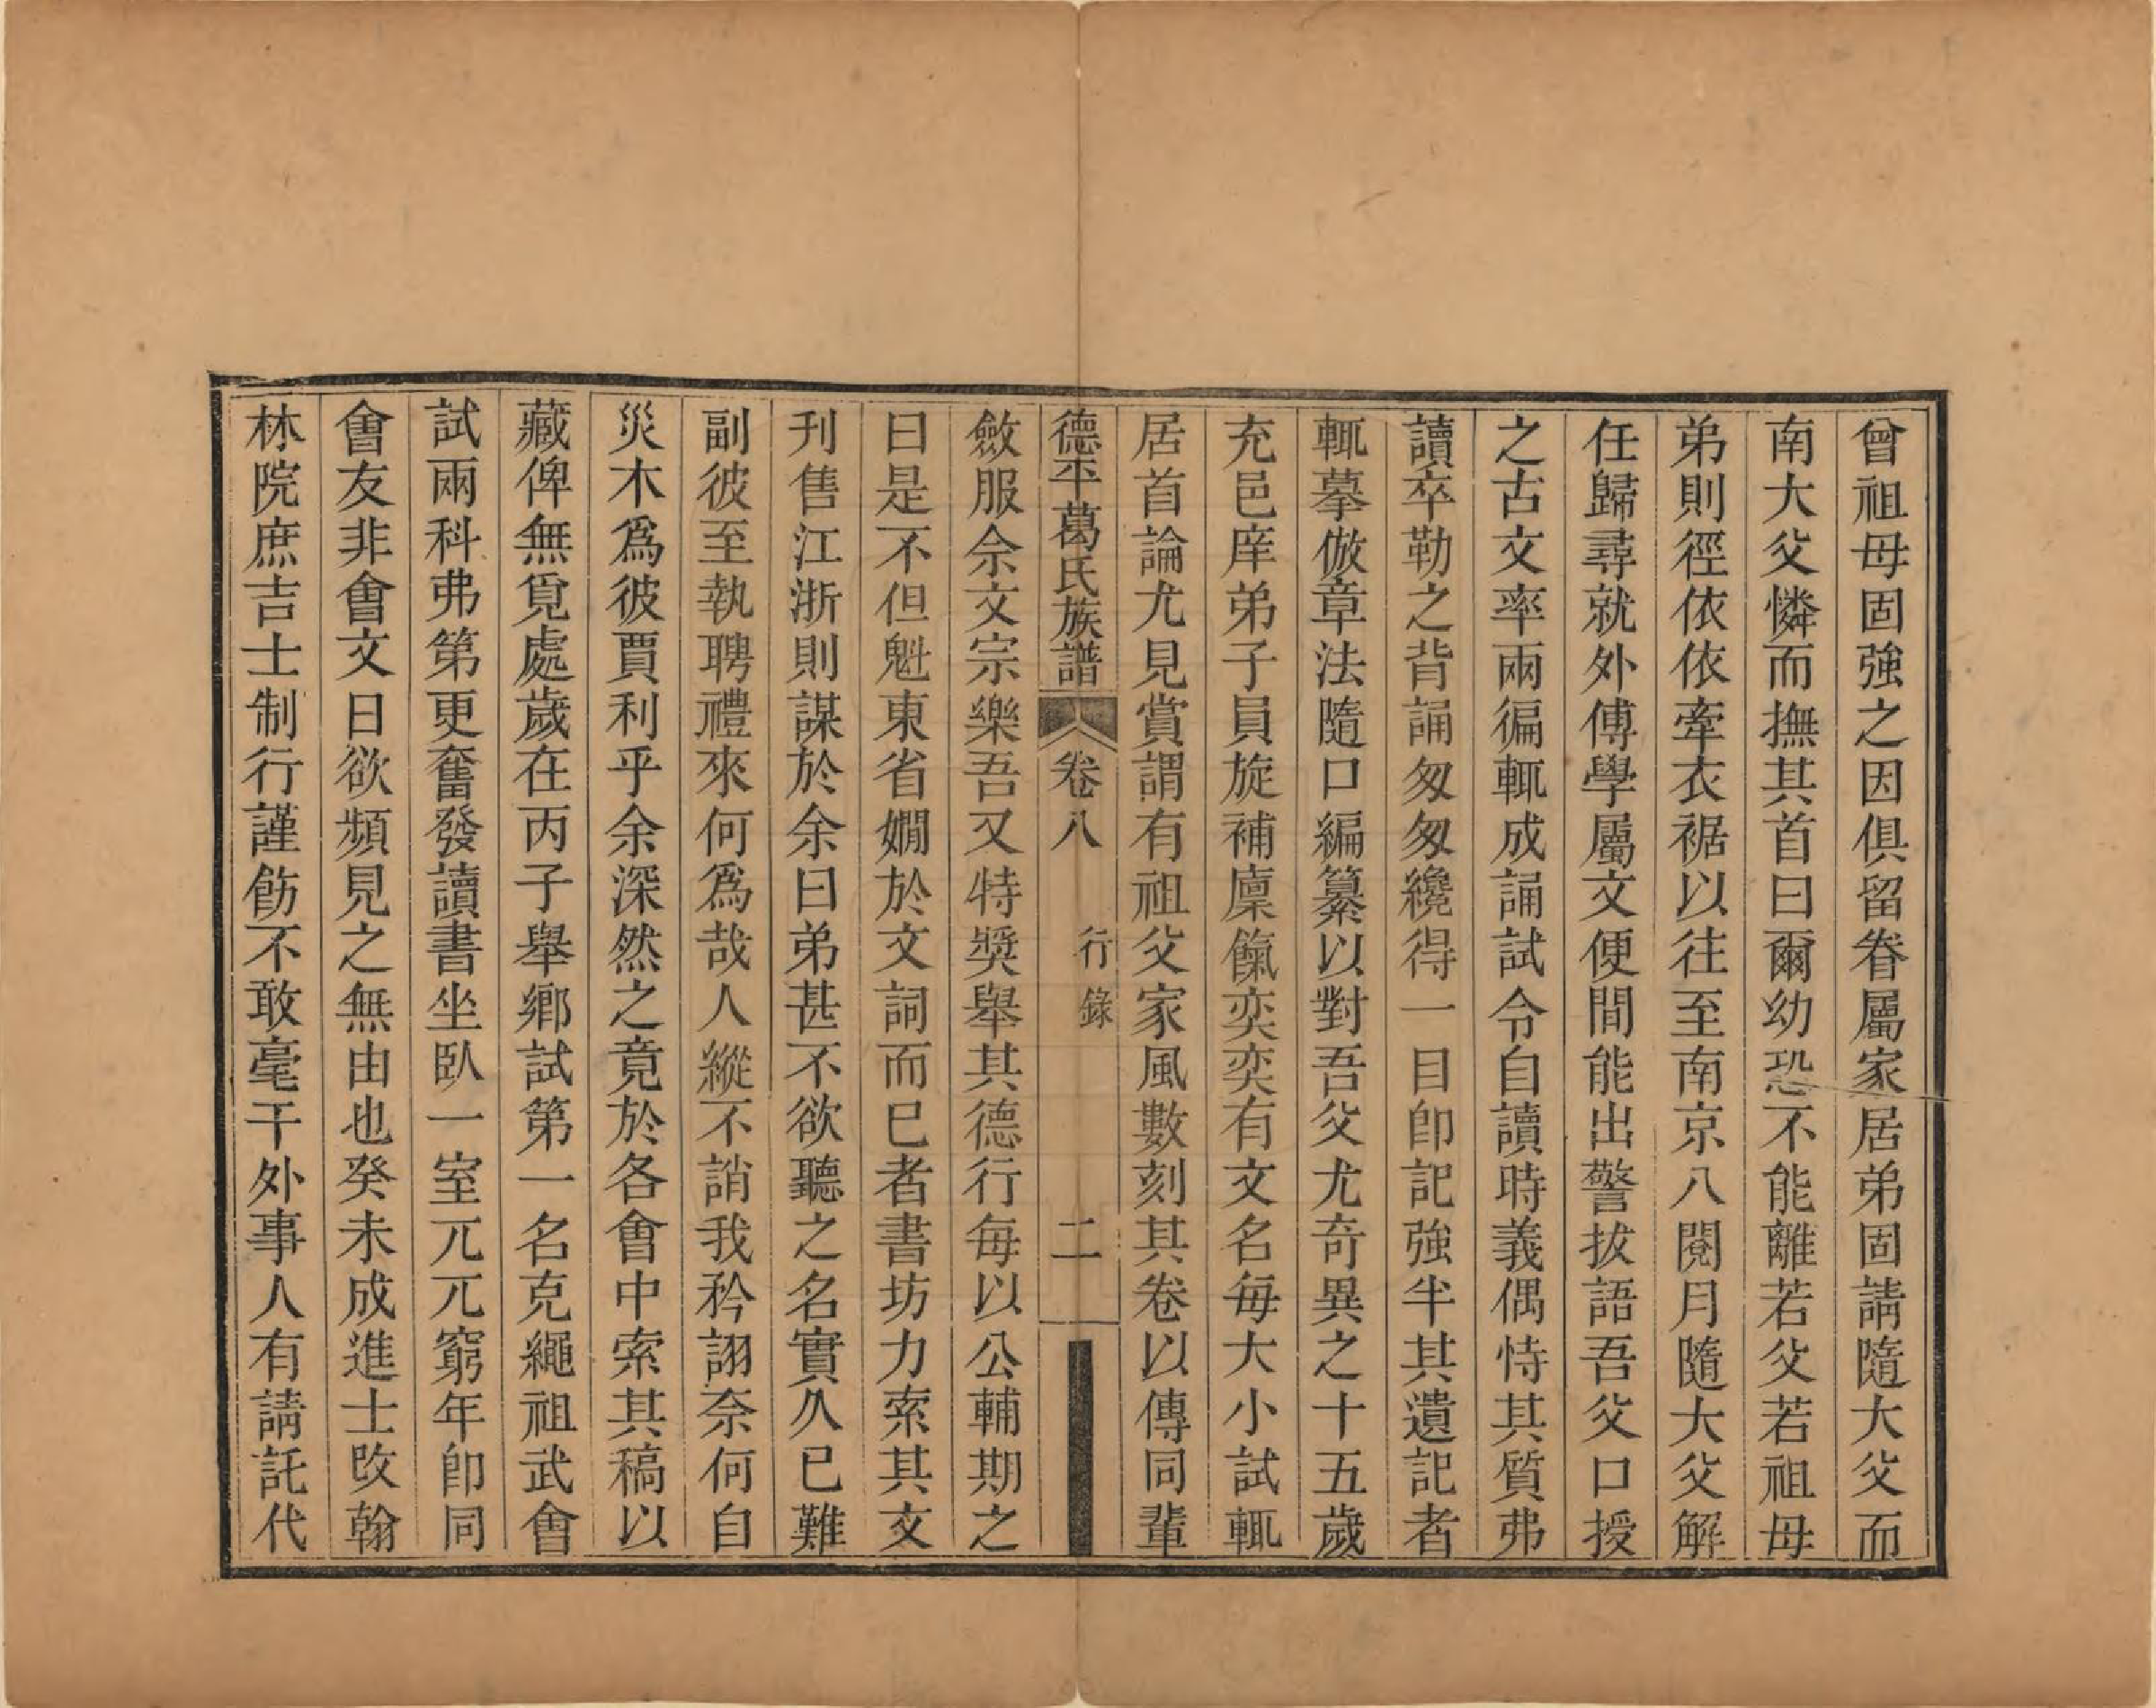 曾祖母固強之因俱留眷屬家居弟固請隨大父而
南大父憐而撫其首曰爾幼恐不能離若父若祖母
弟則徑依依牽衣裾以往至南京八閱月隨大父解
任歸尋就外傅學屬文便間能出警拔語吾父口授
之古文率兩徧輒成誦試令自讀時義偶恃其質弗
讀卒勒之背誦匆匆纔得一目卽記強半其遺記者
輒摹倣章法隨口編纂以對吾父尤奇異之十五歲
充邑庠弟子員旋補廩餼奕奕有文名每大小試輒
居首論尤見賞謂有祖父家風數刻其卷以傳同輩
德平葛氏族譜 卷八 行錄 二
斂服余文宗樂吾又特獎舉其德行每以公輔期之
曰是不但魁東省嫺於文詞而已者書坊力索其文
刊售江浙則謀於余曰弟甚不欲聽之名實久已難
副彼至執聘禮來何爲哉人縱不誚我矜詡奈何自
災木爲彼賈利乎余深然之竟於各會中索其稿以
藏俾無覓處歲在丙子舉鄉試第一名克繩祖武會
試兩科弗第更奮發讀書坐臥一室兀兀窮年卽同
會友非會文日欲頻見之無由也癸未成進士改翰
林院庶吉士制行謹飭不敢毫干外事人有請託代